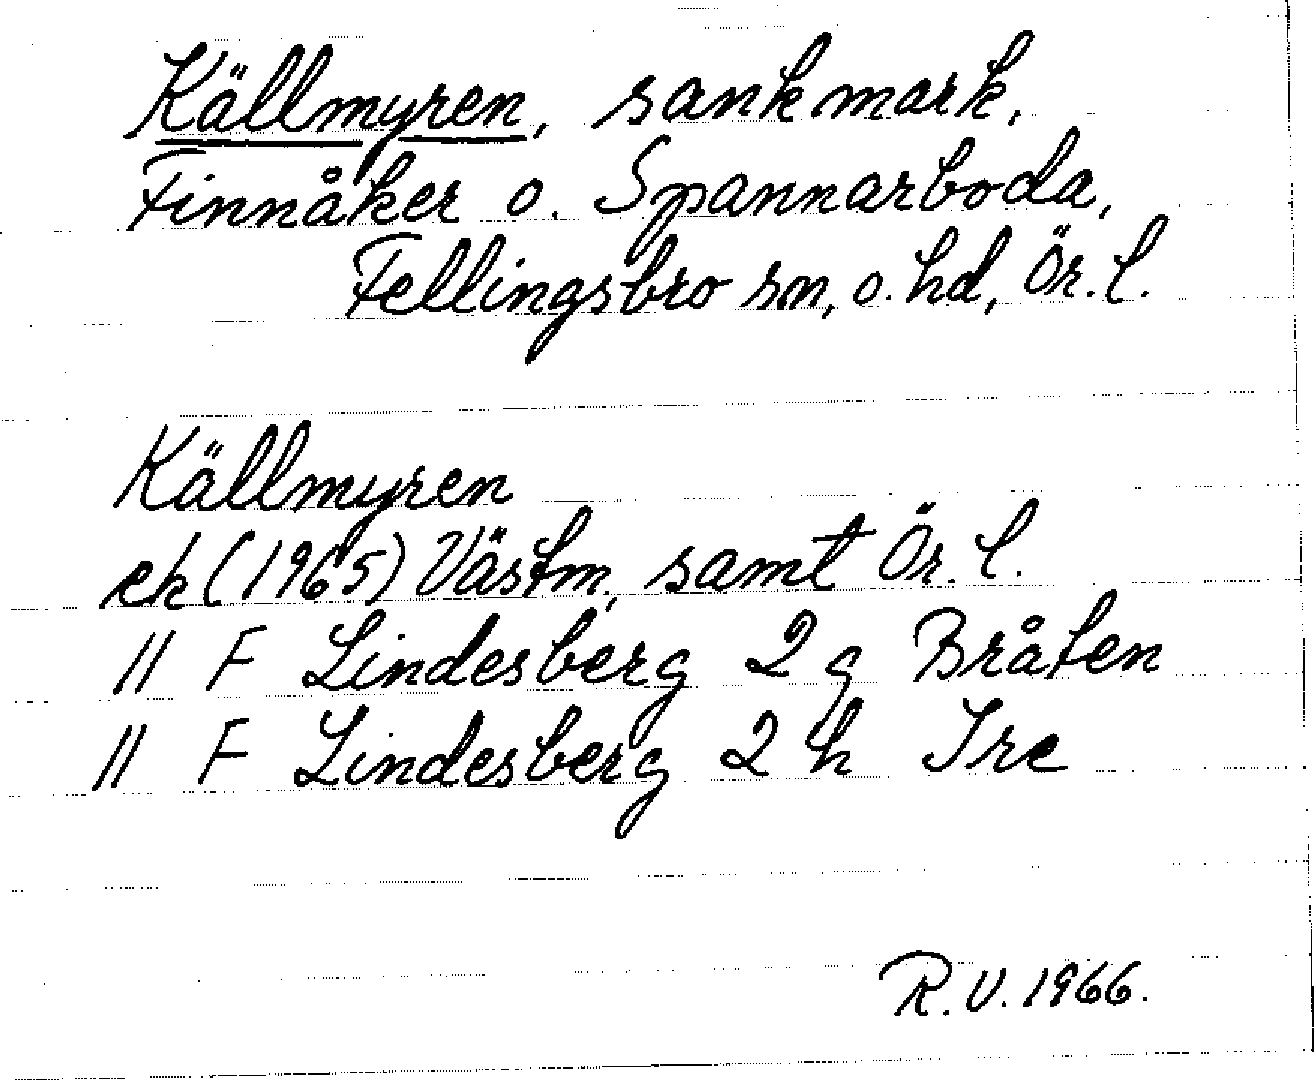 Källmyren, sankmark,
Finnåker o. Spannarboda,
Fellingsbro sn, o. hd, Ör. l.
Källmyren
ek (1965) Västm. samt Ör. l.
11 F Lindesberg 2 g Bråten
11 F Lindesberg 2 h Ire
R. V. 1966.